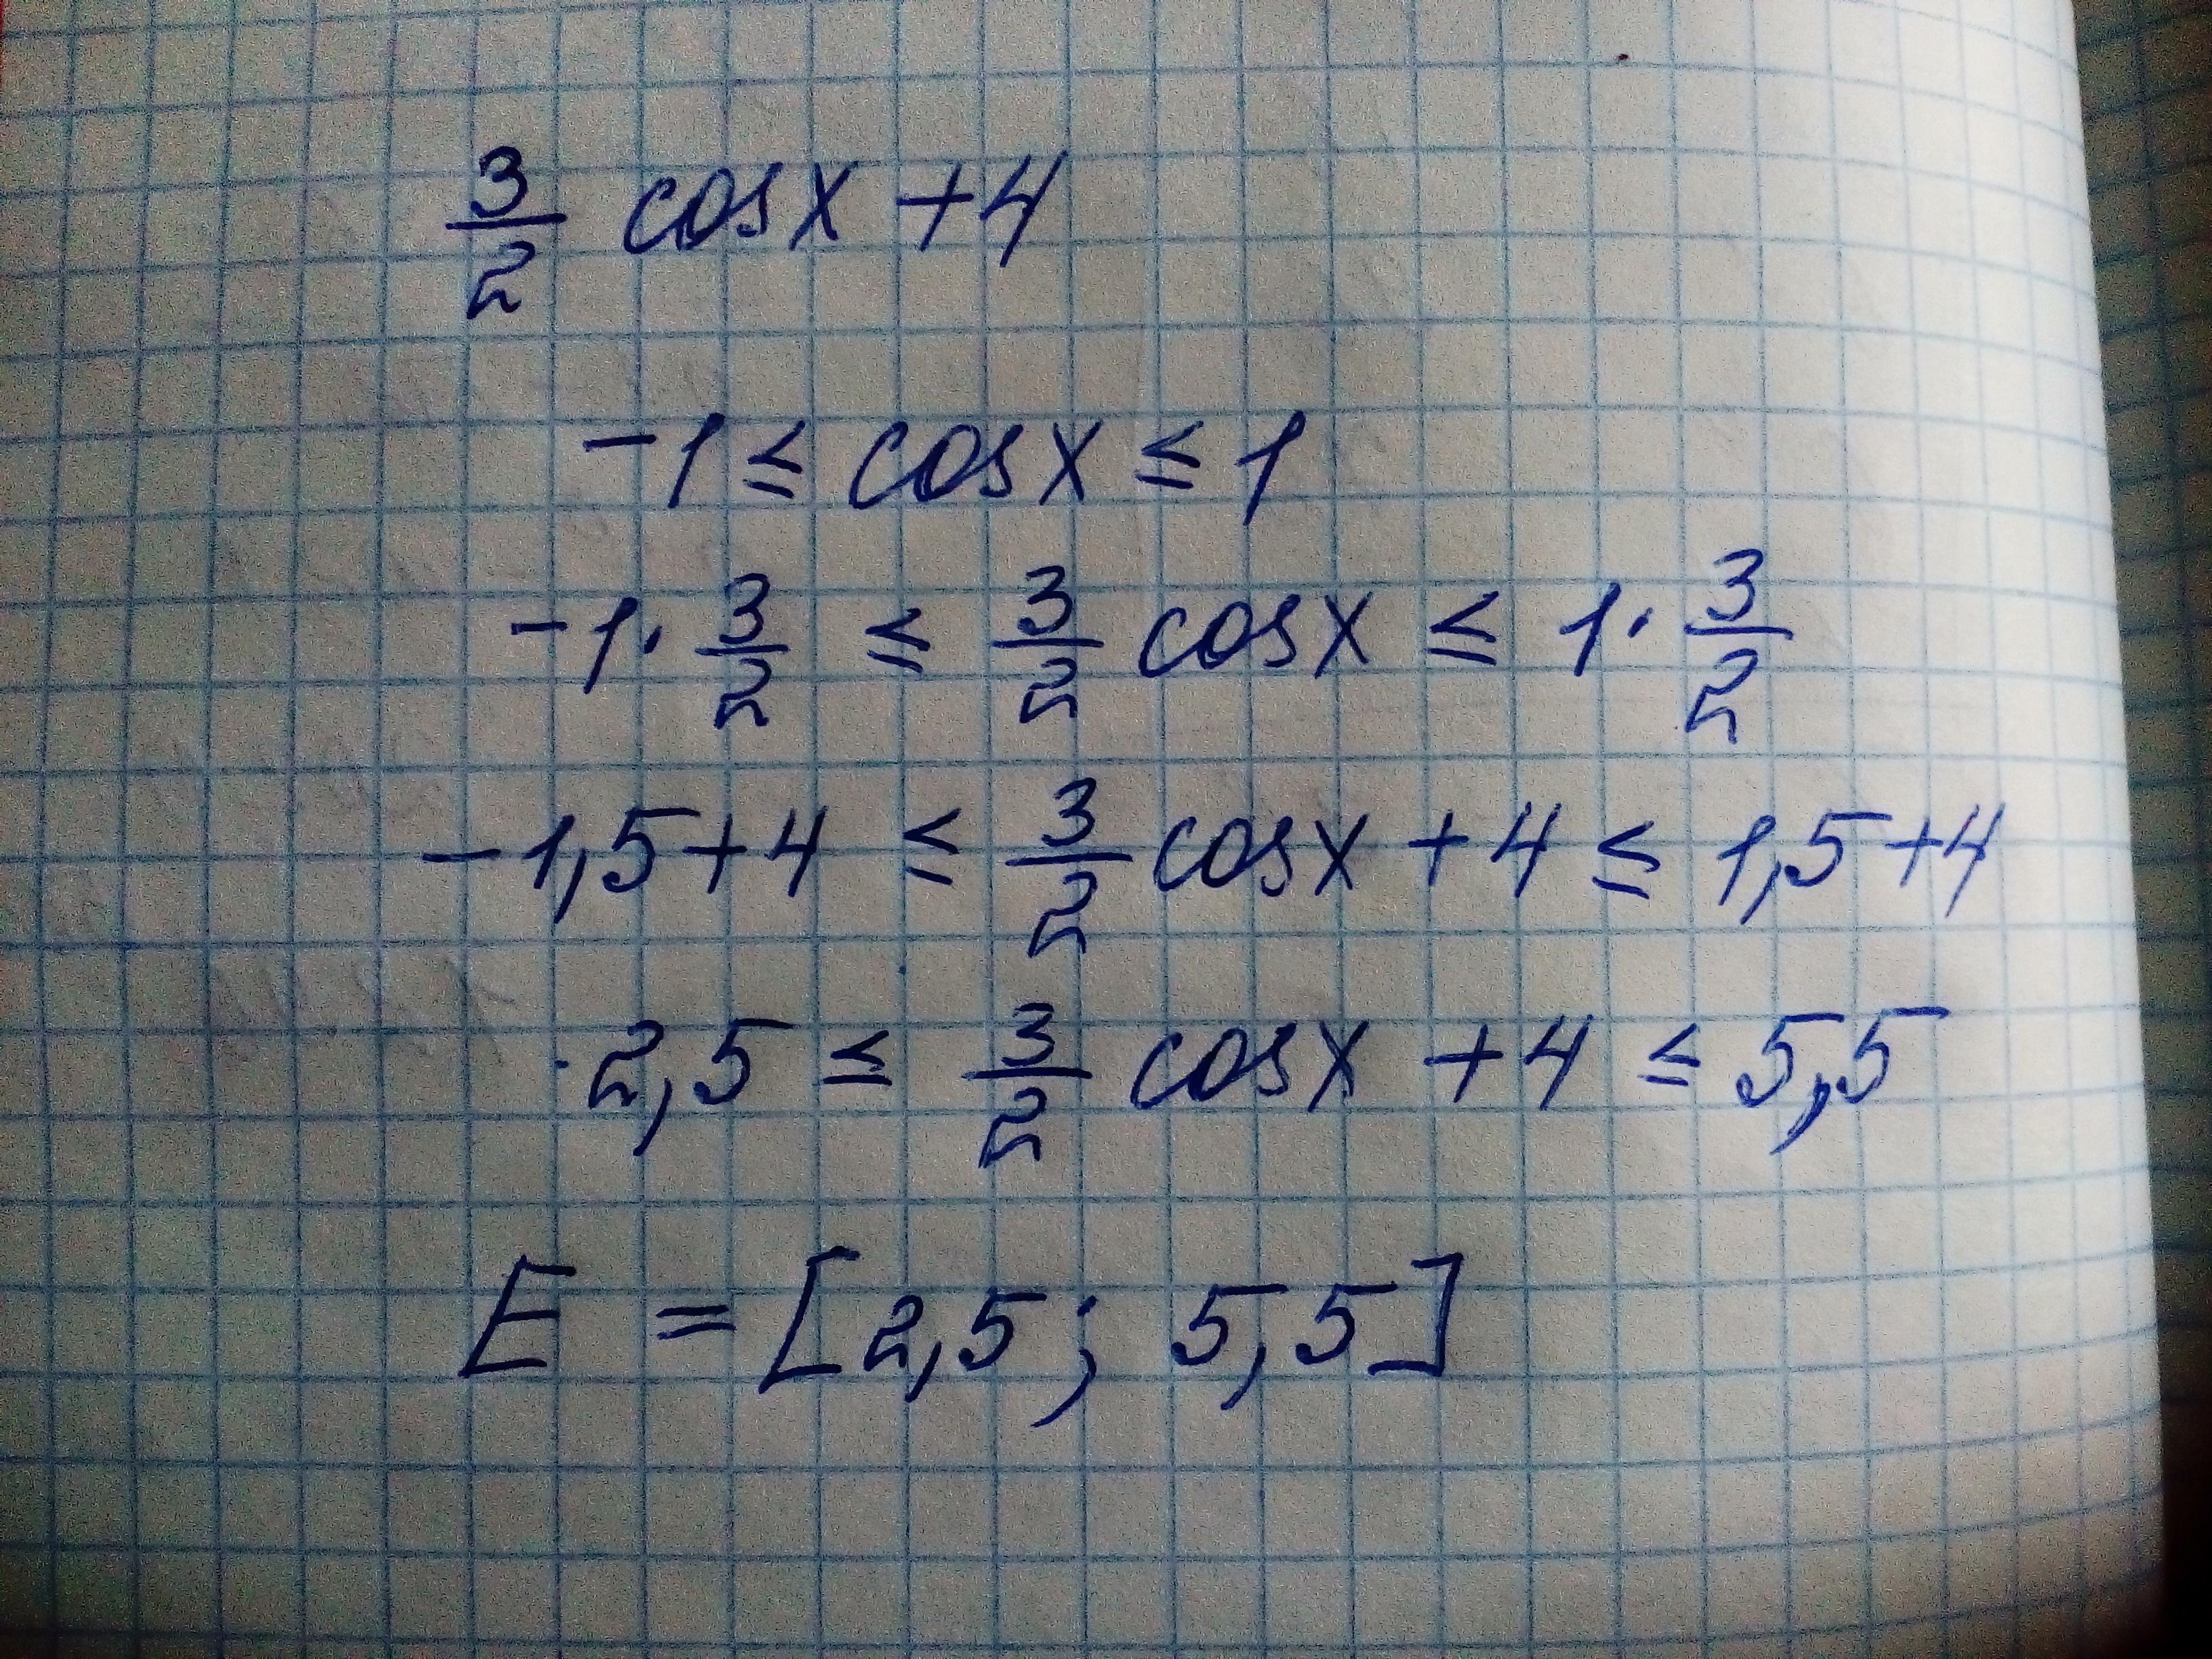 3/2 cosx + 4
-1 ≤ cosx ≤ 1
-1 · 3/2 ≤ 3/2 cosx ≤ 1 · 3/2
-1,5+4 ≤ 3/2 cosx + 4 ≤ 1,5+4
2,5 ≤ 3/2 cosx + 4 ≤ 5,5
E = [2,5; 5,5]